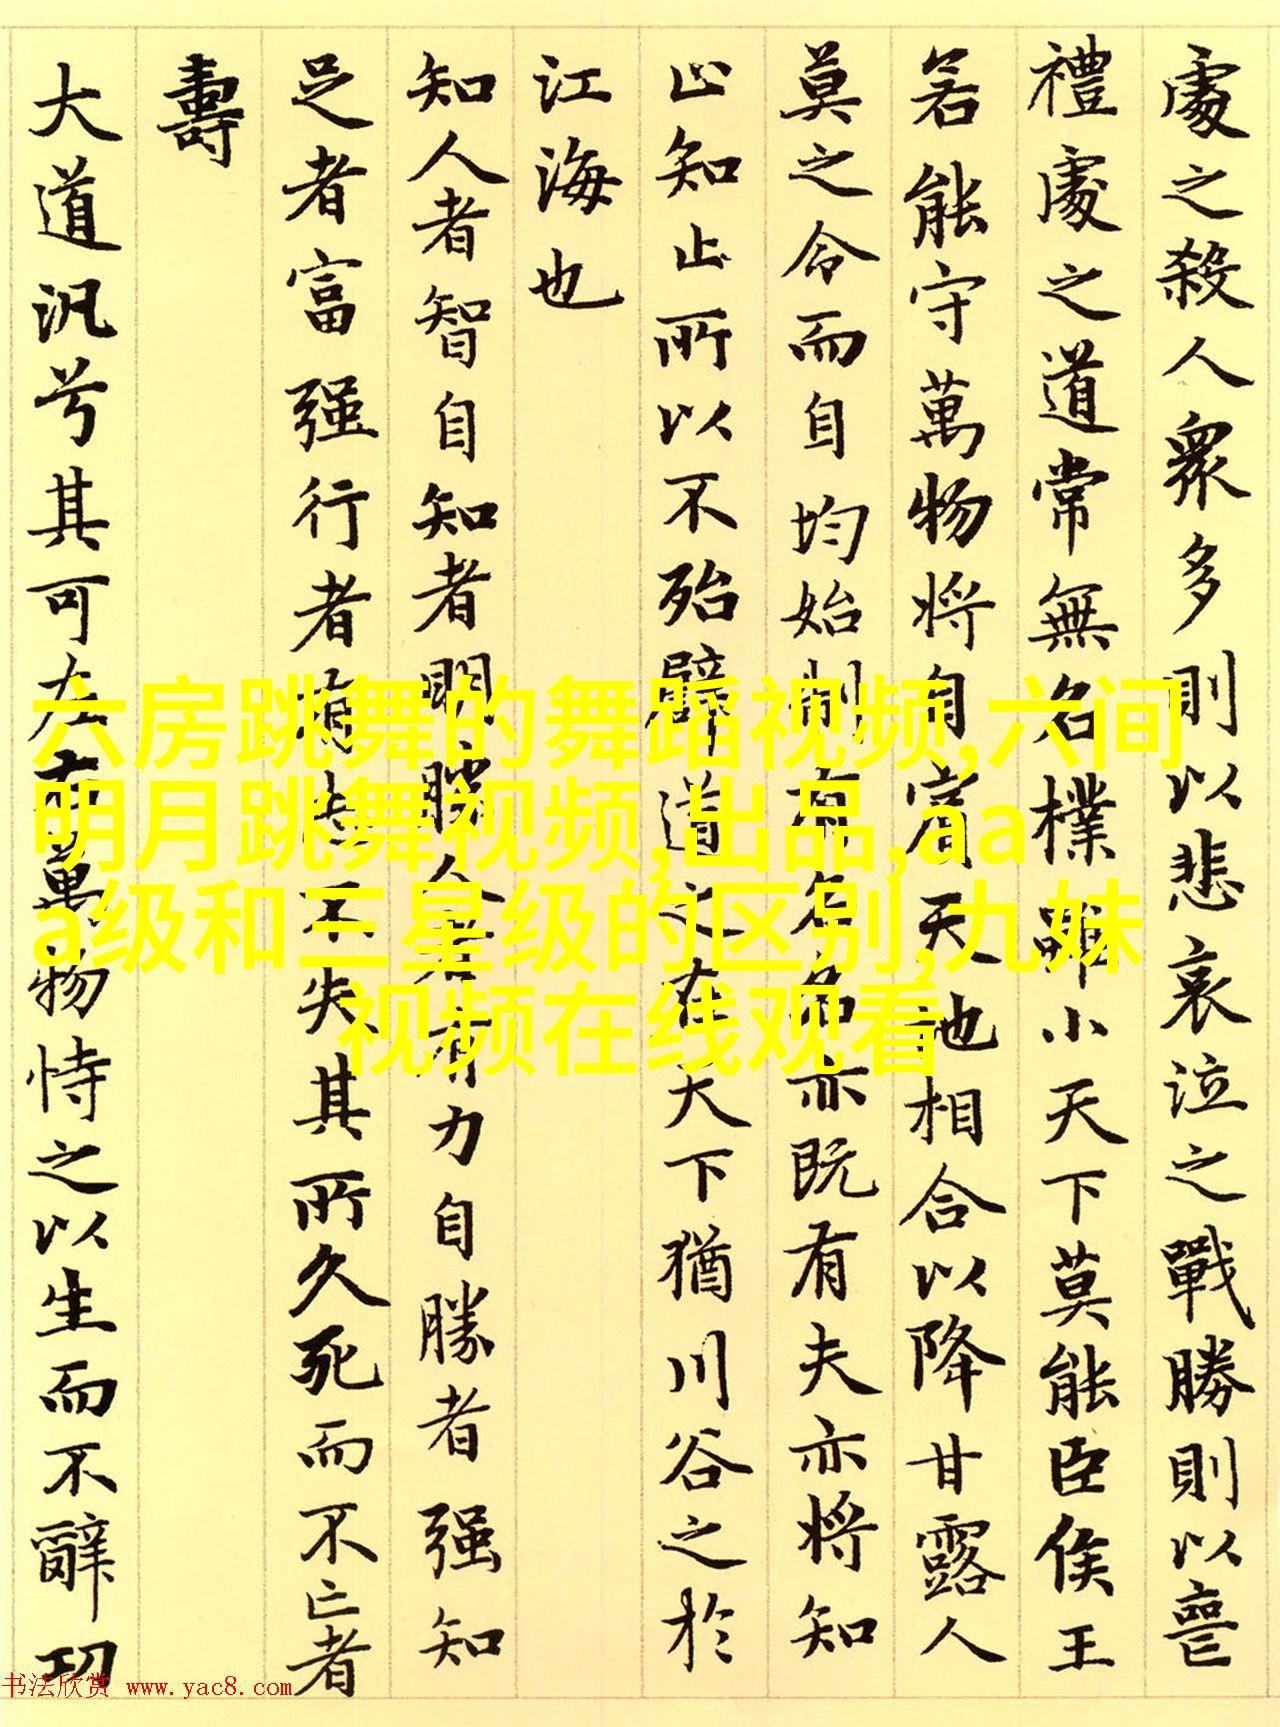 處之殺人衆多則以悲哀泣之戰勝則以喪
禮處之道常無名樸雖小天下莫能臣侯王
若能守萬物將自賓天地相合以降甘露人
莫之令而自均始制有名名亦既有夫亦將知
止知止所以不殆辟道之在天下猶川谷之於
江海也
知人者智自知者明勝人者有力自勝者强知
足者富强行者有志不失其所久死而不亡者
壽
大道汎兮其可左右萬物恃之以生而不辭功
六房跳舞的舞蹈视频,六间
明月跳舞视频,出品,aa
a级和三星级的区别,九妹
视频在线观看
书法欣赏 www.yac8.com